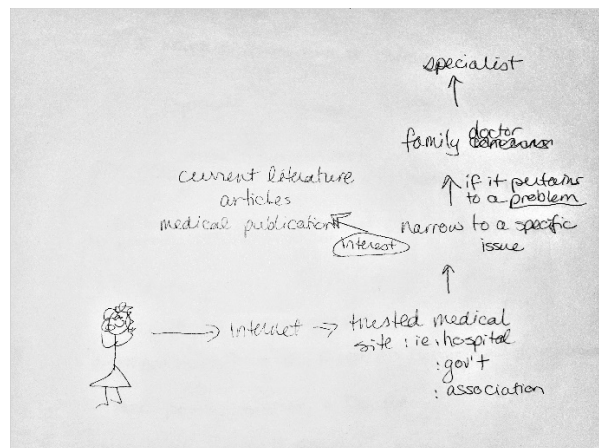 specialist
family doctor
if it pertains
to a problem
current literature
articles
medical publication
interest
narrow to a specific
issue
internet
trusted medical
site : ie. hospital
: gov't
: association